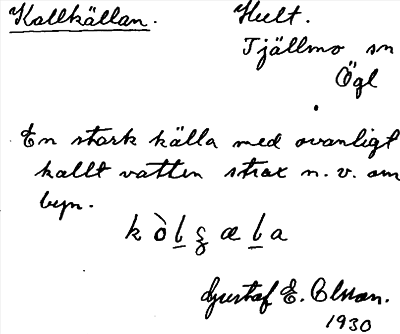 Kallkällan. Hult.
Tjällmo sn
Ögl
En stark källa med ovanligt
kallt vatten strax n.v. om
byn.
k ò l̲ ȿ æ l̲ a
Gustaf E. Olsson.
1930